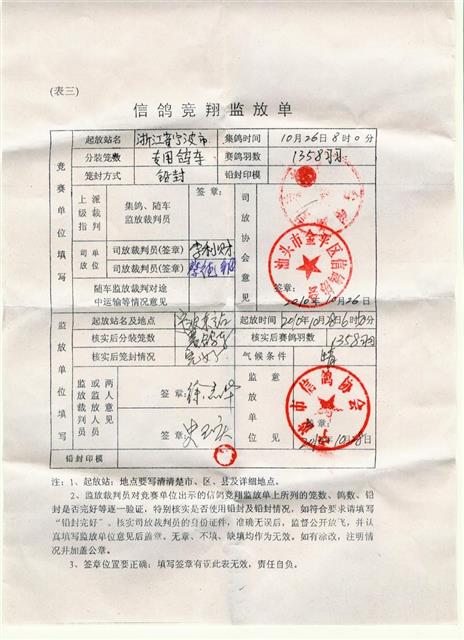 (表三)
信鸽竞翔监放单
起放站名 浙江省宁波市 集鸽时间 10月26日8时0分
分装笼数 专用鸽车 赛鸽羽数 1358羽
笼封方式 铅封 铅封印模
竞赛单位填写
上级指派裁判
集鸽、随车监放裁判员
签章:
司放单位
司放裁判员(签章)
司放裁判员(签章)
随车监放裁判对途中运输等情况意见
司放协会意见
汕头市金平区信鸽协会
签章:
2010年10月26日
起放站名及地点 起放时间 2010年10月28日6时50分
核实后分装笼数 核实后赛鸽羽数 1358羽
核实后笼封情况 完好 气候条件 晴
监放单位填写
监放裁判员
或两人以上见证人意见
签章:
签章:
监放单位意见
宁波市信鸽协会
签章:
2010年10月28日
铅封印模
注:1、起放站:地点要写清清楚市、区、县及详细地点。
2、监放裁判员对竞赛单位出示的信鸽竞翔监放单上所列的笼数、鸽数、铅
封是否完好等逐一验证,特别核实是否使用铅封及铅封情况,如符合要求请填写
“铅封完好”。核实司放裁判员的身份证件,准确无误后,监督公开放飞,并认
真填写监放单位意见后盖章。无章、不填、缺填均作为无效。如有涂改,注明情
况并加盖公章。
3、签章位置要正确:填写签章有误此表无效,责任自负。